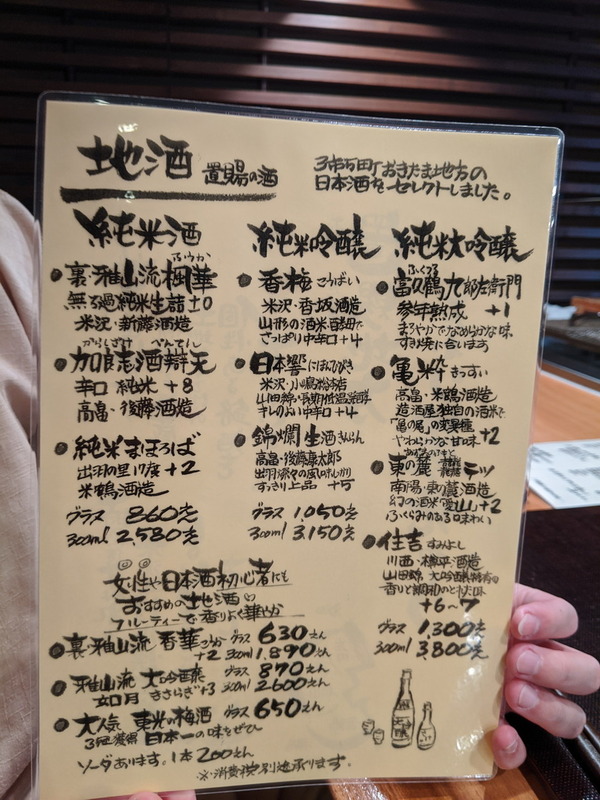 地酒 置賜の酒
3市5町おきたま地方の
日本酒をセレクトしました。
純米酒
裏・雅山流 楓華
ふうか
無ろ過純米生詰±0
米沢・新藤酒造
からしずけ べんてん
加良志酒 辯天
辛口 純米 +8
高畠・後藤酒造
純米まほろば
出羽の里 17度 +2
米鶴酒造
グラス 860えん
300ml 2,580えん
純米吟醸
香梅 こうばい
米沢・香坂酒造
山形の酒米
さっぱり中辛口+4
日本響 にほんひびき
米沢・小嶋総本店
山田錦・長期低温発酵
キレのよい中辛口+4
錦爛 生酒 きんらん
高畠・後藤康太郎
出羽燦々の風味しっかり
すっきり上品 +5
グラス 1,050えん
300ml 3,150えん
純米大吟醸
ふくつる
富久鶴九郎左衛門
参年熟成 +1
まろやかでなめらかな味
すき焼に合います
亀粋 きっすい
高畠・米鶴酒造
造酒屋独自の酒米で
「亀の尾」の変異種
やわらかな甘味 +2
あずまのふもと
東の麓 テツ
南陽・東の麓酒造
幻の酒米 愛山 +2
ふくらみのある味わい
住吉 すみよし
川西・樽平酒造
山田錦 大吟醸特有の
香りと調和のとれた味
+6〜7
グラス 1,300えん
300ml 3,800えん
女性や日本酒初心者にも
おすすめの地酒
フルーティーで香りよく華やか
裏・雅山流 香華 こうか グラス 630えん
+2 300ml 1,890えん
雅山流 大吟醸 グラス 870えん
如月 きさらぎ +3 300ml 2600えん
大人気 東光の梅酒 グラス 650えん
3冠獲得 日本一の味をぜひ
ソーダあります。1本200えん
※消費税別途承ります。